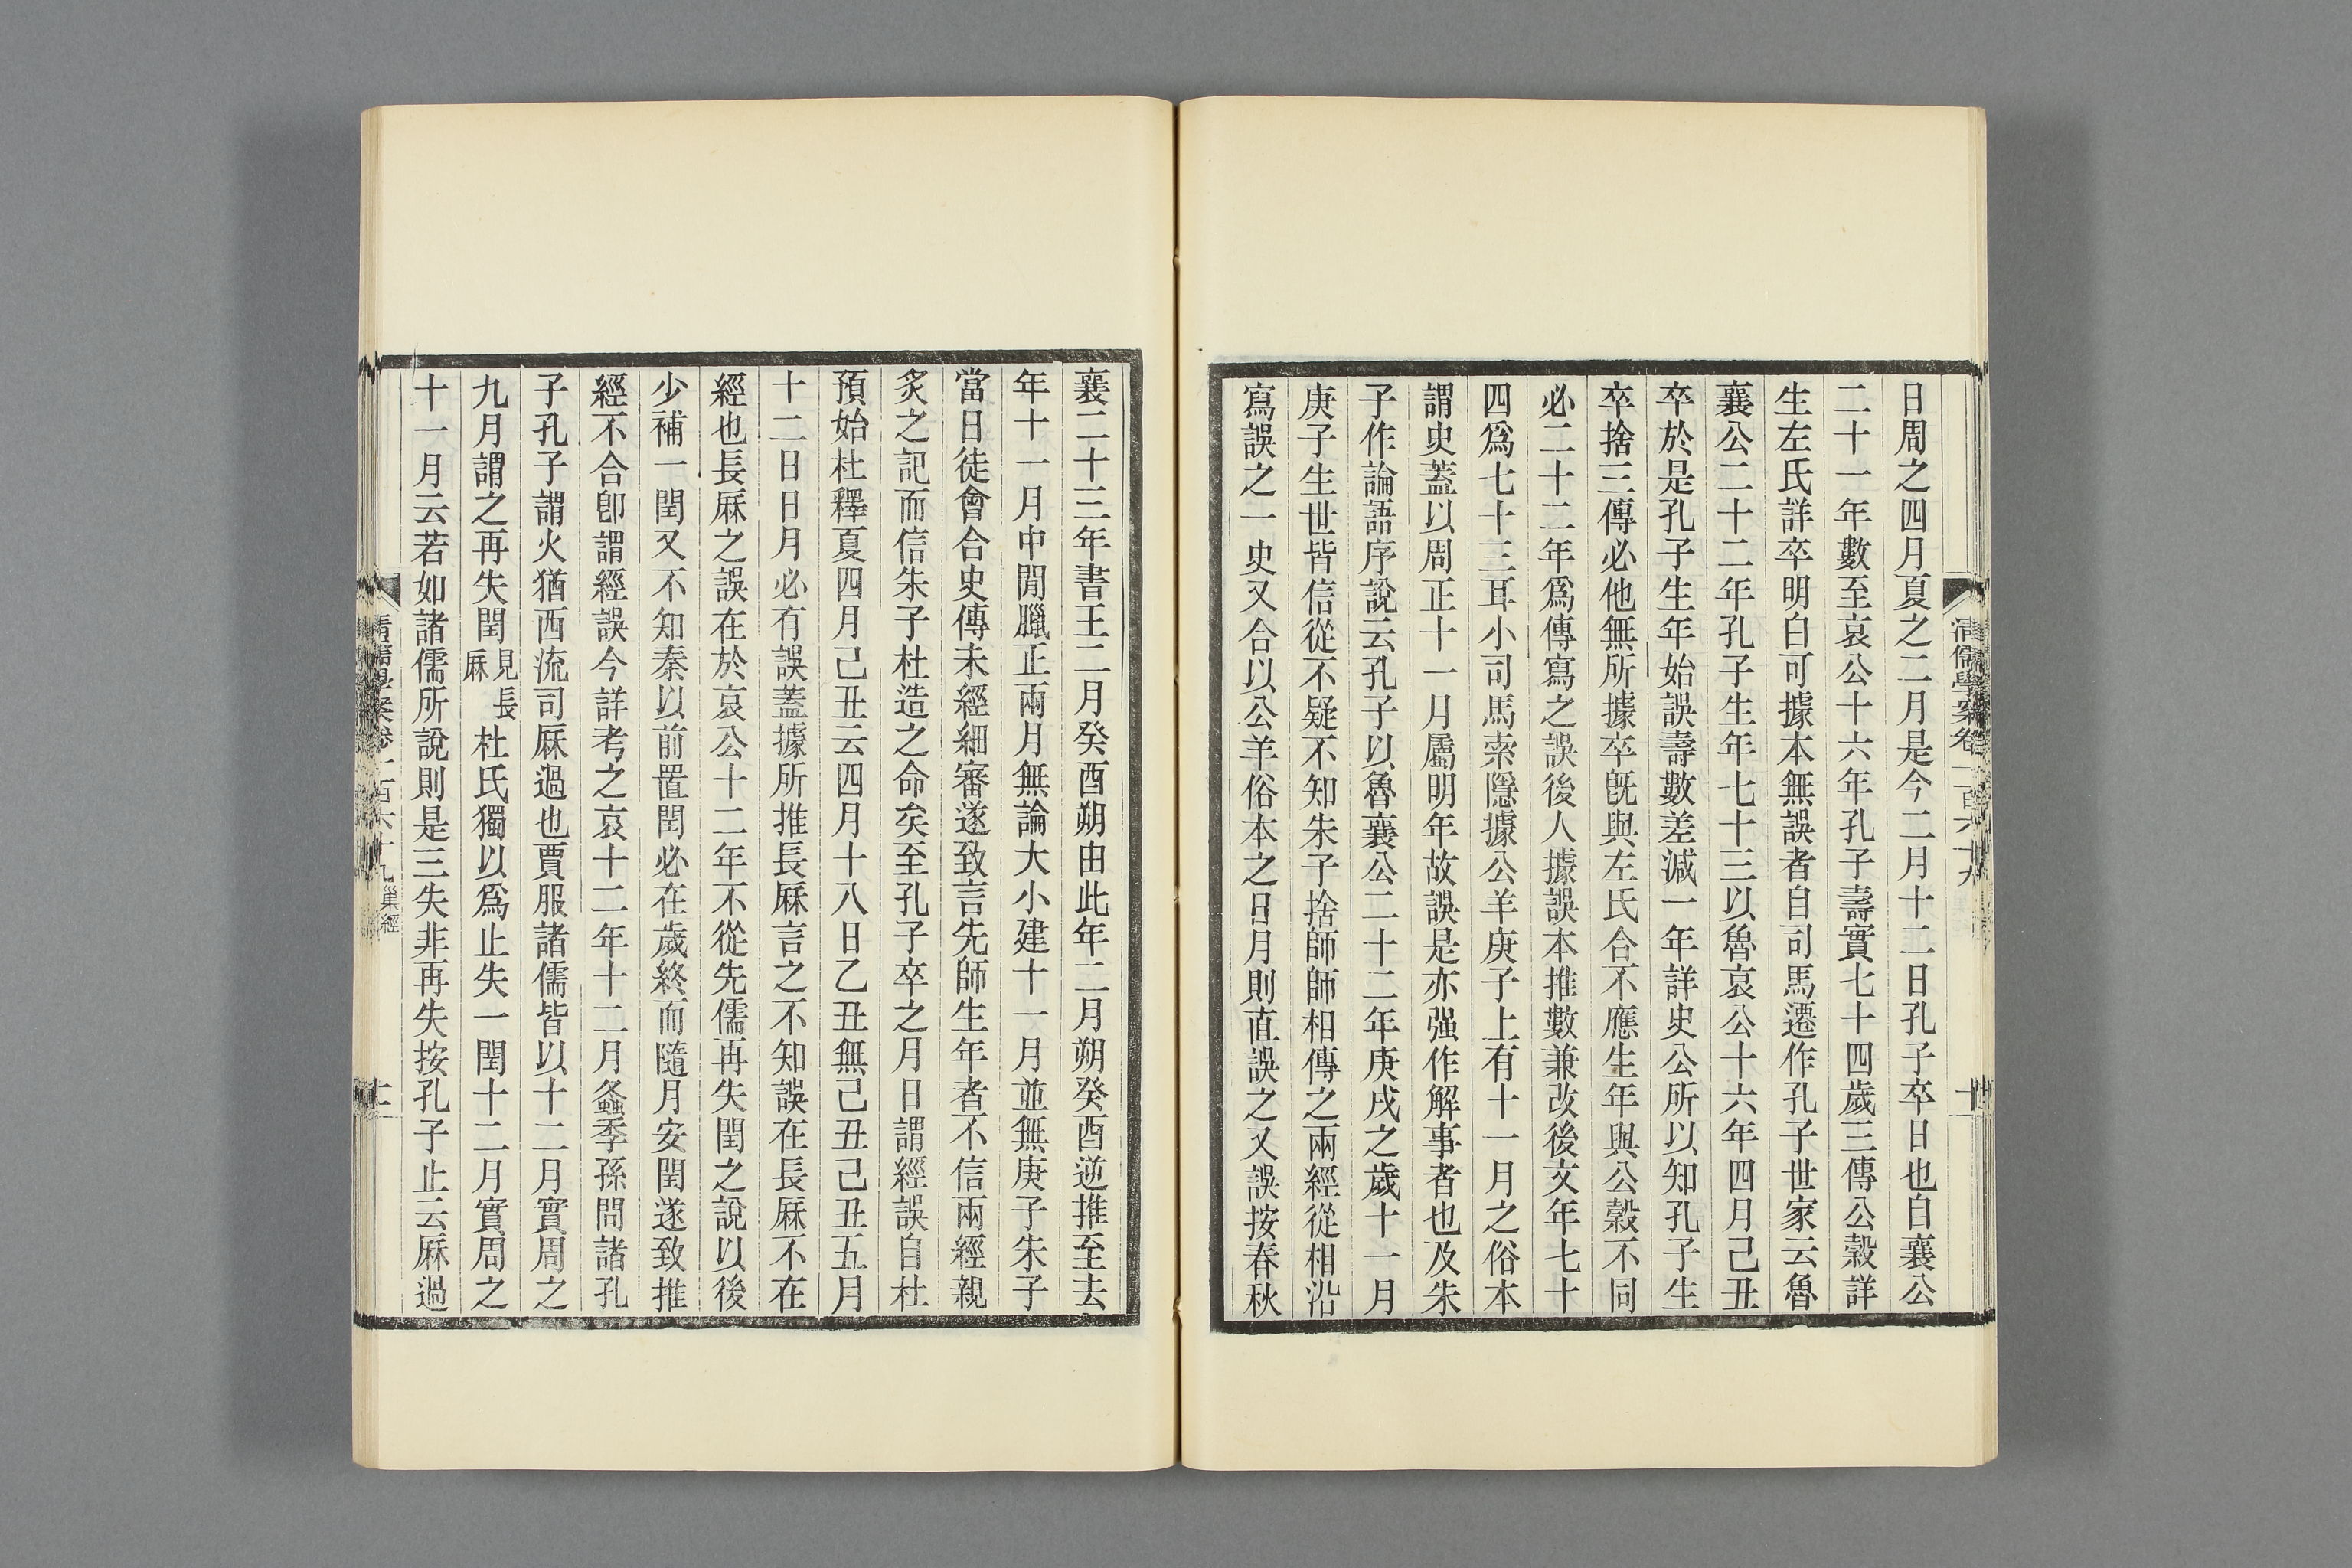 日周之四月夏之二月是今二月十二日孔子卒日也自襄公
二十一年數至哀公十六年孔子壽實七十四歲三傳公穀詳
生左氏詳卒明白可據本無誤者自司馬遷作孔子世家云魯
襄公二十二年孔子生年七十三以魯哀公十六年四月己丑
卒於是孔子生年始誤壽數差減一年詳史公所以知孔子生
卒捨三傳必他無所據卒旣與左氏合不應生年與公穀不同
必二十二年爲傳寫之誤後人據誤本推數兼改後文年七十
四爲七十三耳小司馬索隱據公羊庚子上有十一月之俗本
謂史蓋以周正十一月屬明年故誤是亦强作解事者也及朱
子作論語序說云孔子以魯襄公二十二年庚戌之歲十一月
庚子生世皆信從不疑不知朱子捨師師相傳之兩經從相沿
寫誤之一史又合以公羊俗本之日月則直誤之又誤按春秋
襄二十三年書王二月癸酉朔由此年二月朔癸酉逆推至去
年十一月中閒臘正兩月無論大小建十一月並無庚子朱子
當日徒會合史傳未經細審遂致言先師生年者不信兩經親
炙之記而信朱子杜造之命矣至孔子卒之月日謂經誤自杜
預始杜釋夏四月己丑云四月十八日乙丑無己丑己丑五月
十二日日月必有誤蓋據所推長厤言之不知誤在長厤不在
經也長厤之誤在於哀公十二年不從先儒再失閏之說以後
少補一閏又不知秦以前置閏必在歲終而隨月安閏遂致推
經不合卽謂經誤今詳考之哀十二年十二月螽季孫問諸孔
子孔子謂火猶西流司厤過也賈服諸儒皆以十二月實周之
九月謂之再失閏見長厤杜氏獨以爲止失一閏十二月實周之
十一月云若如諸儒所說則是三失非再失按孔子止云厤過
清儒學案卷一百六十九
十
清儒學案卷一百六十九 巢經
十一